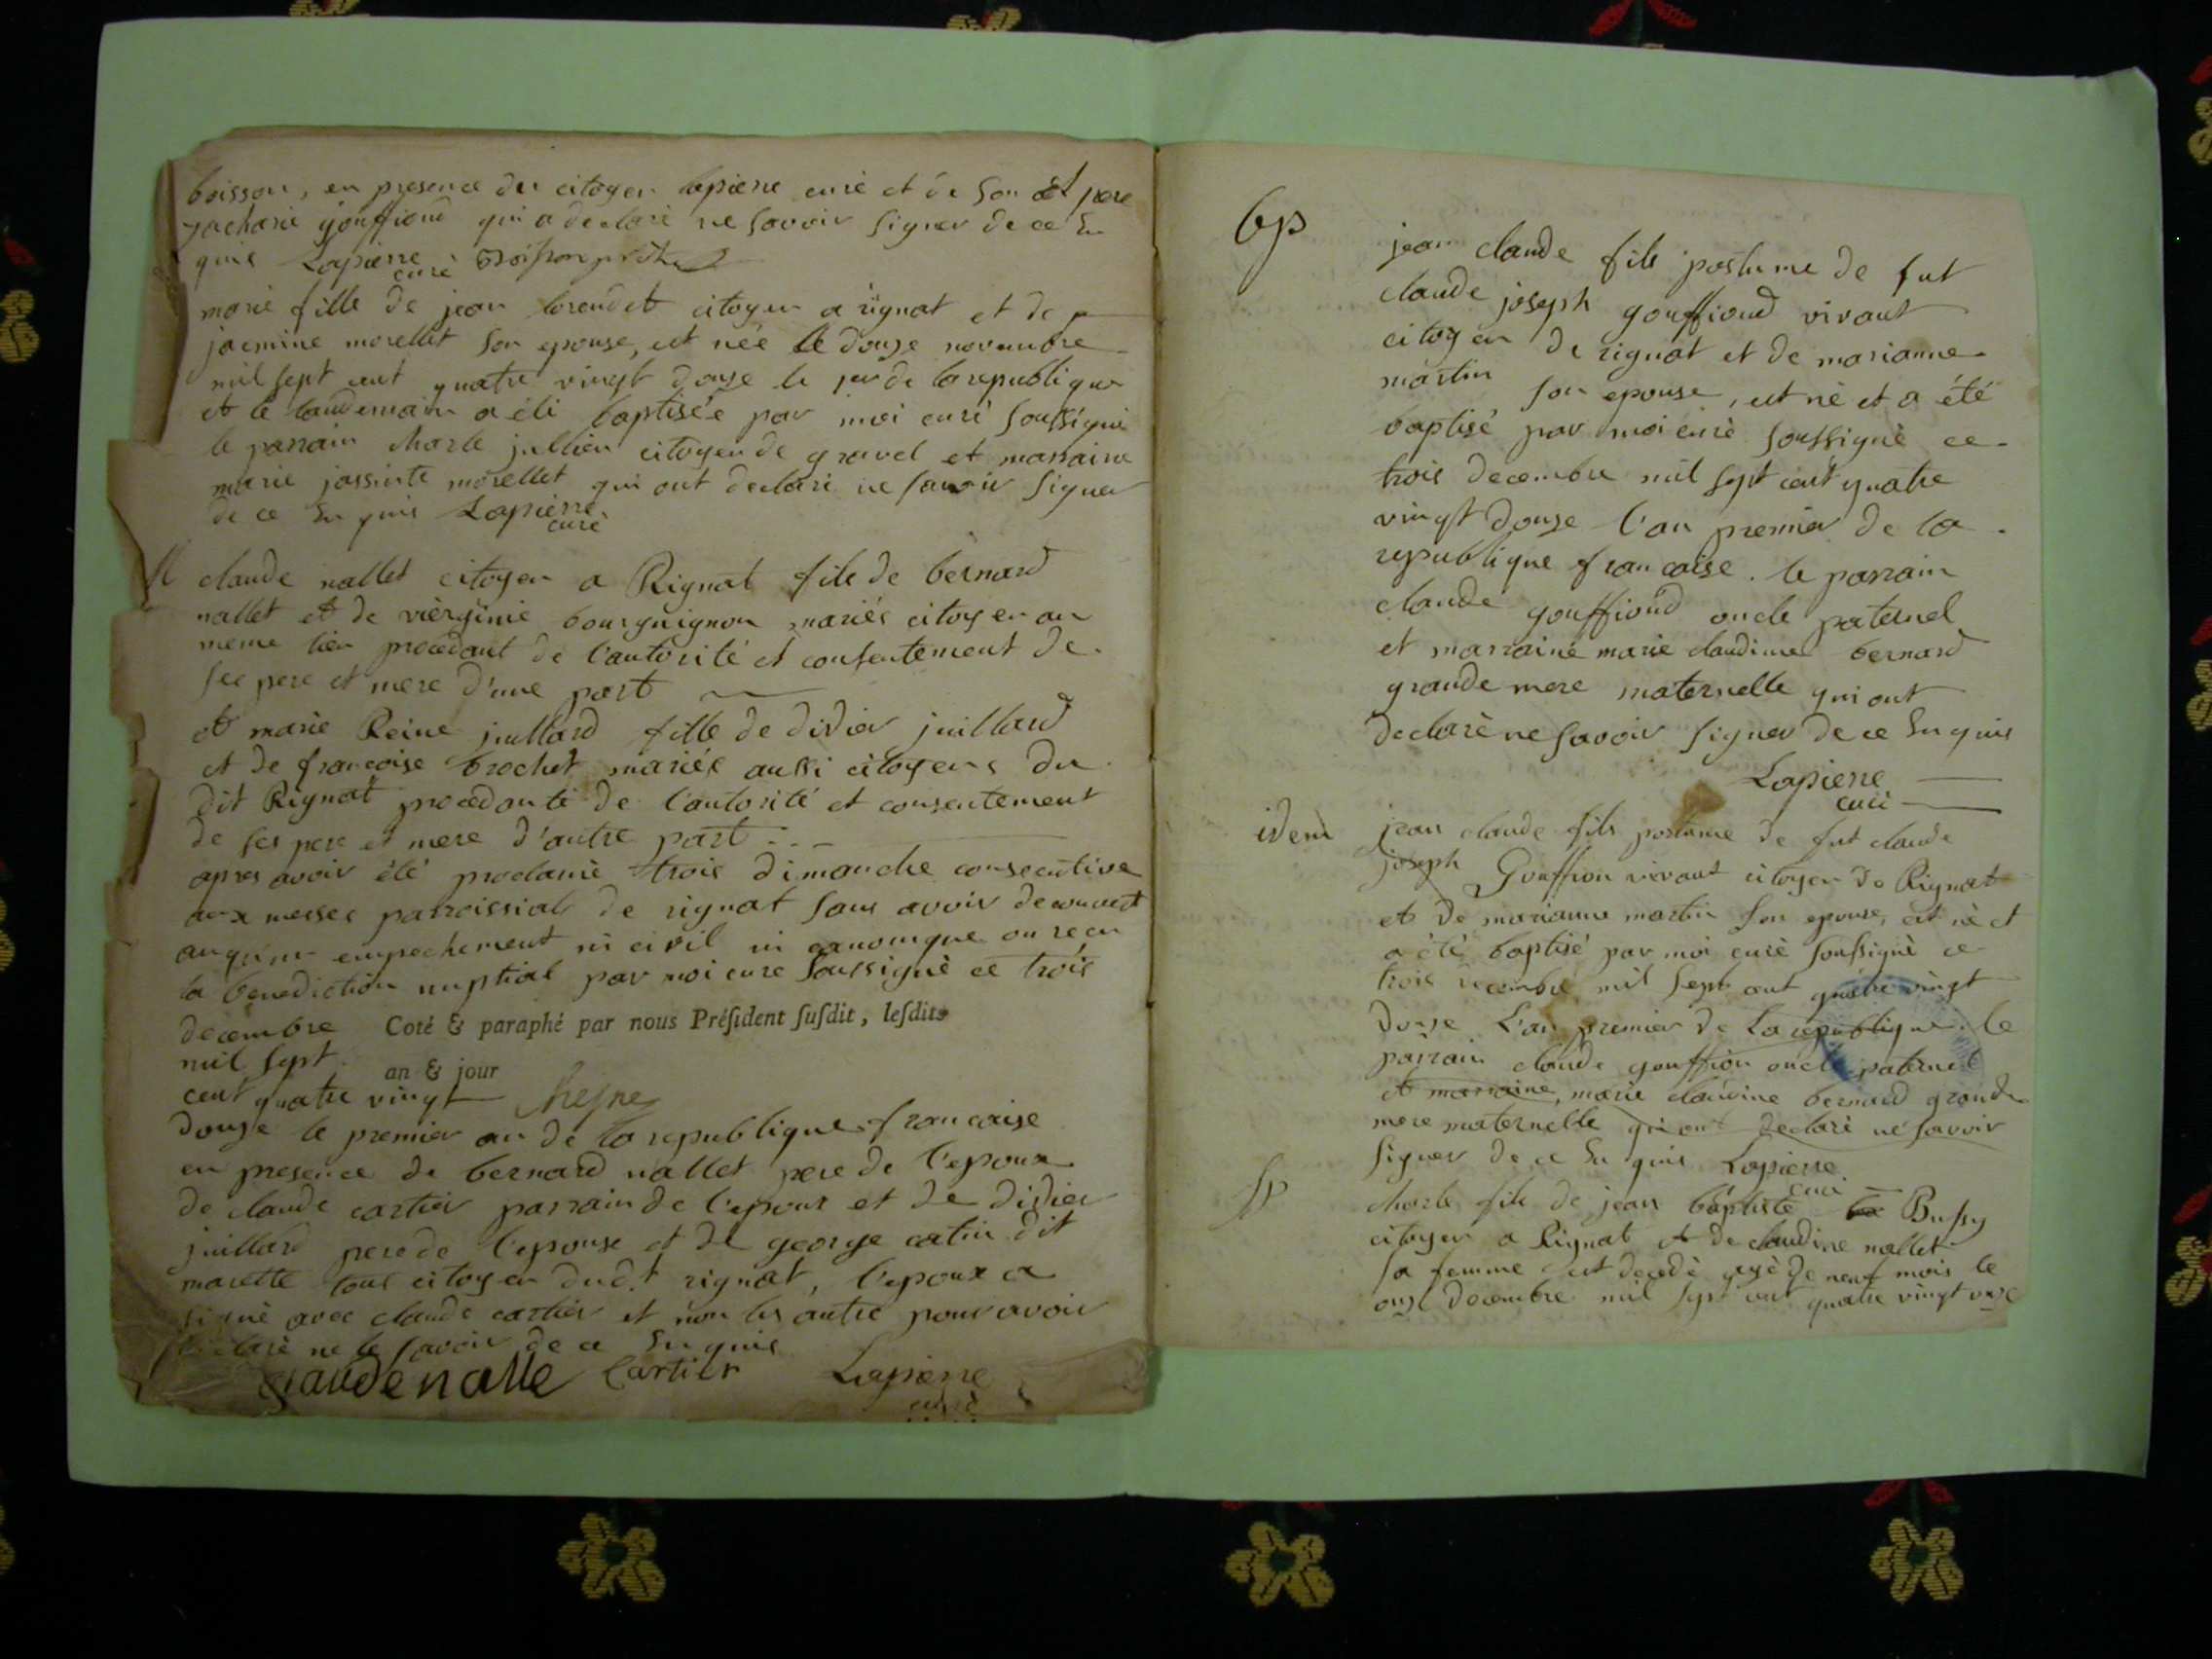 boisson, en presence du citoyen lapierre curé et de son dt pere
zacharie gouffioud qui a declaré ne savoir signer de ce en
quis Lapierre curé Boisson
marie fille de jean citoyen a rignat et de
jacmine morellet son epouse, est née le douze novembre
mil sept cent quatre vingt douze le 1er de la republique
et le landemain a été baptisée par moi curé soussigné
le parrain charle jullien citoyen de gravel et marraine
marie jassinte morellet qui ont declaré ne savoir signer
de ce en quis Lapierre
curé
claude nallet citoyen a Rignat fils de bernard
nallet et de vierginie bourguignon mariés citoyen au
meme lieu procedant de l'autorité et consentement de
ses pere et mere d'une part
et marie Reine juillard fille de didier juillard
et de francoise brochet mariés aussi citoyens du
dit Rignat procedante de l'autorité et consentement
de ses pere et mere d'autre part
apres avoir été proclamé trois dimanche consecutive
aux messes parroissial de rignat sans avoir decouvert
auqu'un empechement ni civil ni canonique on recu
la benediction nuptial par moi cure soussigné ce trois
decembre Coté & paraphé par nous Préſident ſuſdit, leſdits
mil sept
an & jour
cent quatre vingt
douze le premier an de la republique francaise
en presence de bernard nallet pere de l'epoux
de claude cartier parrain de l'epoux et de didier
juillard pere de l'epouse et de george catin dit
marette tous citoyen dudt rignat, l'epoux a
signé avec claude cartier et non les autre pour avoir
declaré ne le savoir de ce en quis
claude nalle Cartier Lapierre
curé
bp
jean claude fils postume de fut
claude joseph gouffioud vivant
citoyen de rignat et de marianne
martin son epouse, est né et a été
baptisé par moi curé soussigné ce
trois decembre mil sept cent quatre
vingt douze l'an premier de la
republique francaise. le parrain
claude gouffioud oncle paternel
et marraine marie claudine bernard
grande mere maternelle qui ont
declaré ne savoir signer de ce en quis
Lapierre
curé
idem
jean claude fils postume de fut claude
joseph Gouffion vivant citoyen de Rignat
et de marianne martin son epouse, est né et
a été baptisé par moi curé soussigné ce
trois decembre mil sept cent quatre vingt
douze L'an premier de la republique. le
parrain claude gouffion oncle paternel
et marraine, marie claudine bernard grande
mere maternelle qui ont declaré ne savoir
signer de ce en quis Lapierre
curé
charle fils de jean baptiste Bussy
citoyen a Rignat et de claudine nallet
sa femme est decedé agé de neuf mois le
onze decembre mil sept cent quatre vingt